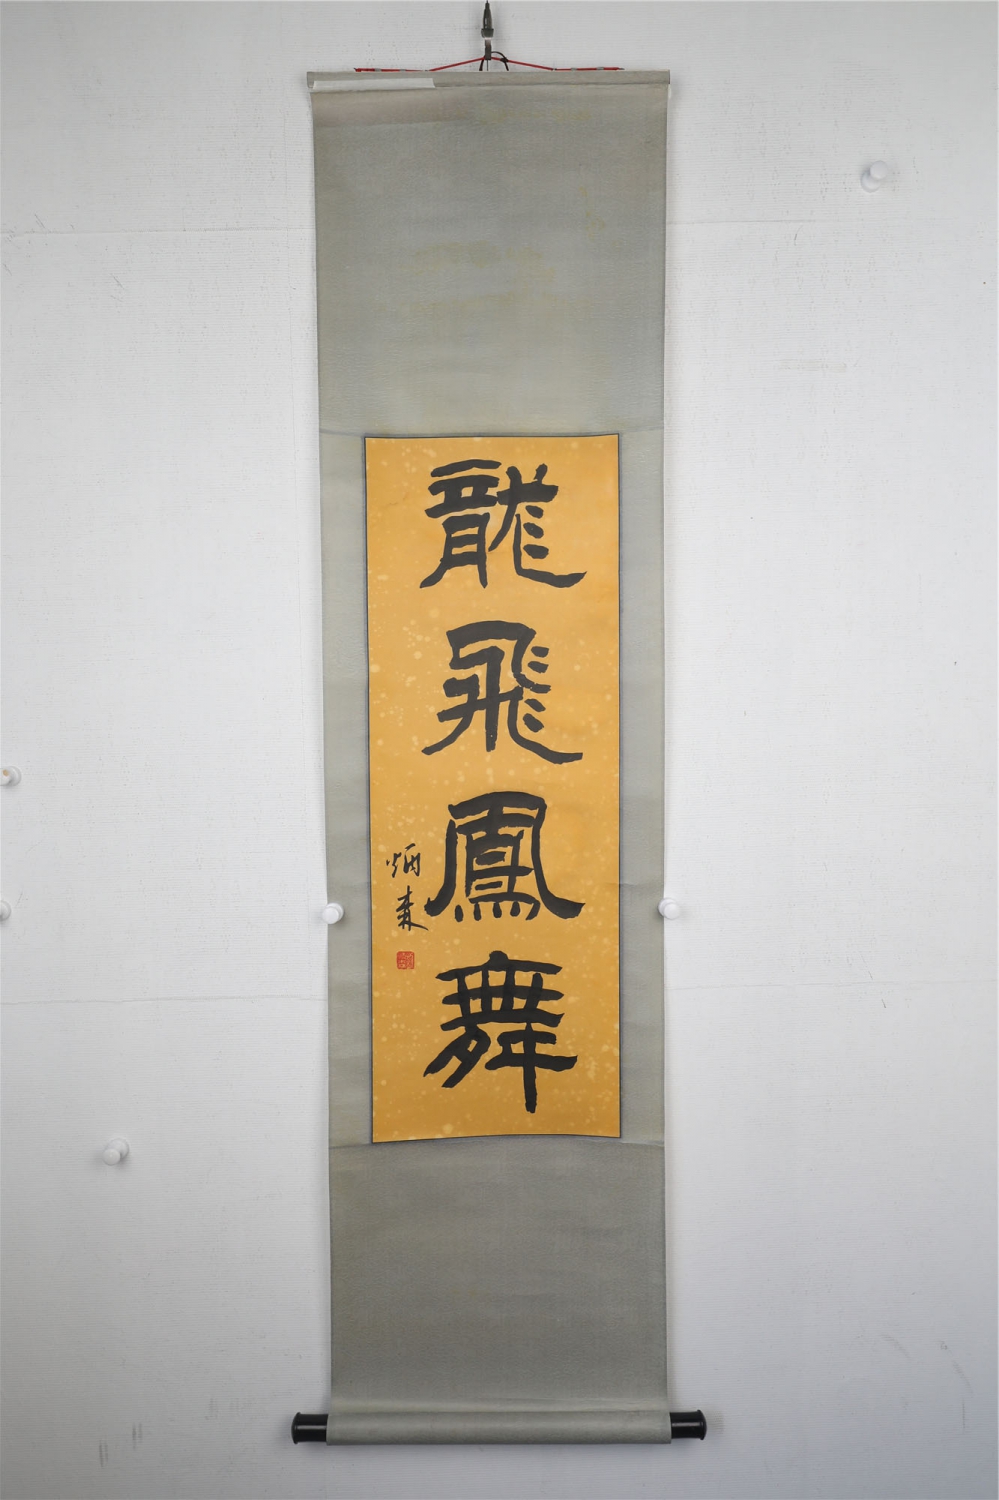 龍飛鳳舞
炳森